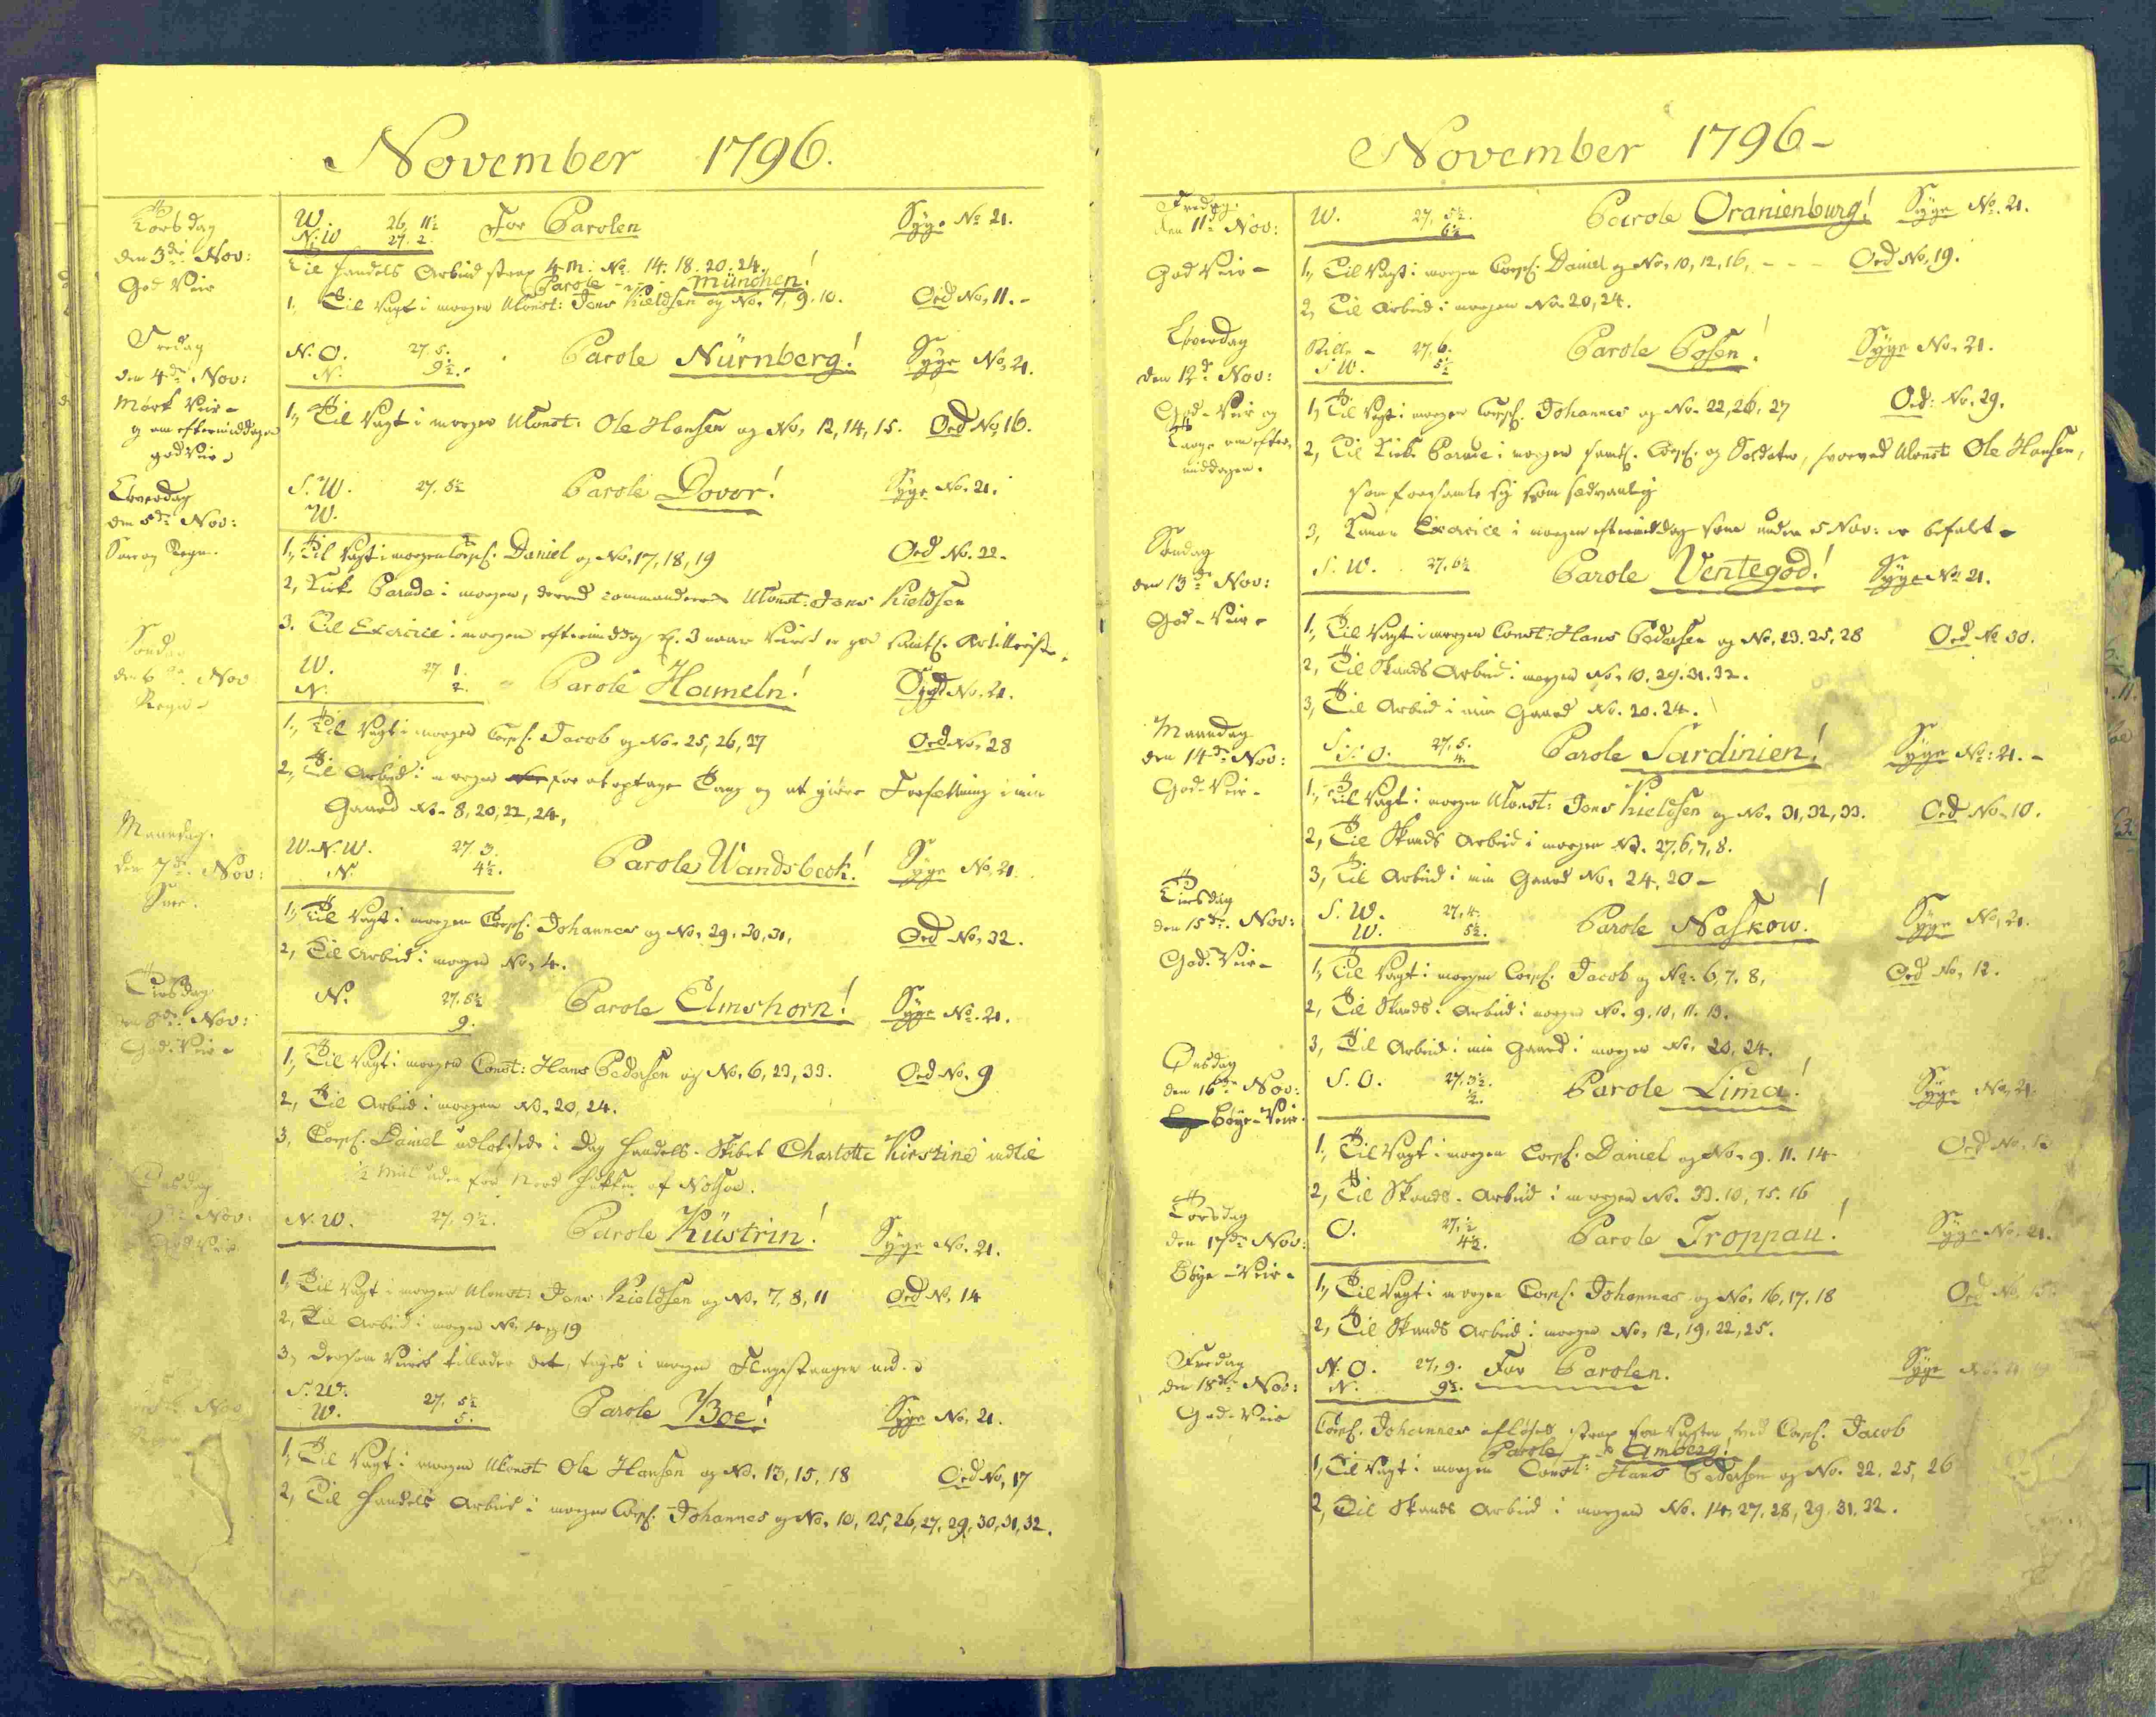 November 1796.
Torsdag
den 3die Nov:
God Veir
W. 26, 11½ For Parolen Syge No 21.
N:W 27. 2.
Til Handels Arbeid strax 4 M: No. 14. 18. 20. 24.
Parole München!
1, Til Vagt i morgen UConst: Jens Kieldsen og No. 7, 9. 10. Ord No, 11. -
Fredag
den 4de Nov:
Mørk Veir -
og om eftermiddagen
god Veir -
N. O. 27. 5. Parole Nürnberg! Syge No, 21.
N. 9½.
1, Til Vagt i morgen UConst: Ole Hansen og No, 12, 14, 15. Ord No, 16.
Løverdag
den 5de Nov:
Snee og Regn.
S. W. 27. 5½ Parole Dovor! Syge No. 21.
W.
1, Til Vagt i morgen Corpl: Daniel og No, 17, 18, 19 Ord No. 22 -
2, Kirke Parade i morgen, derved commanderer UConst: Jens Kieldsen
3. Til Exercice i morgen eftermiddag Kl. 3 naar Veiret er god samtl. Artillerister.
Søndag
den 6te Nov
Regn -
W. 27 1. Parole Hameln! Syge No. 21.
N. 2.
1, Til Vagt i morgen Corpl: Jacob og No. 25, 26, 27 Ord No, 28
2, Til Arbeid i morgen for at optage Tang og at giøre Forsetning i min
Gaard No. 8, 20, 22, 24,
Mandag.
den 7de Nov:
Snee.
W. N. W. 27. 3. Parole Wandsbeck! Syge No, 21.
N. 4½.
1, Til Vagt i morgen Corpl: Johannes og No, 29. 30, 31, Ord No, 32.
2, Til Arbeid i morgen No, 4.
Tirsdag
den 8de Nov:
God. Veir -
N. 27. 8½ Parole Elmshorn! Syge No. 21.
9.
1, Til Vagt i morgen Const: Hans Pedersen og No, 6, 23, 33. Ord No. 9
2, Til Arbeid i morgen No. 20, 24.
3, Corpl: Daniel udlodsede i Dag Handels-Skibet Charlotte Kirstine indtil
½ Miil uden for Nord Hukken af Nolsøe.
Onsdag
9de Nov:
God Veir
N. W. 27, 9½. Parole Küstrin! Syge No. 21.
1, Til Vagt i morgen UConst: Jens Kieldsen og No. 7, 8, 11 Ord No, 14
2, Til Arbeid i morgen No. 4 og 19
3, Dersom Veiret tillader det, tages i morgen Flagstangen ned.
Nov
S. W. 27, 5½ Parole Boe! Syge No, 21.
W. 5.
1, Til Vagt i morgen UConst Ole Hansen og No. 13, 15, 18 Ord No, 17
2, Til Handels Arbeid i morgen Corpl: Johannes og No. 10, 25, 26, 27, 29, 30, 31, 32.
November 1796 -
Fredag.
den 11te Nov:
God Veir -
W. 27, 5½. Parole Oranienburg! Syge No. 21.
6½
1, Til Vagt i morgen Corpl: Daniel og No, 10, 12, 16, - - - Ord No, 19.
2, Til Arbeid i morgen No. 20, 24.
Løverdag
den 12te Nov:
God - Veir og
Taage om efter-
middagen.
Stille - 27, 6. Parole Posen! Syge No. 21.
S W. 5½
1, Til Vagt i morgen Corpl: Johannes og No. 22, 26, 27 Ord: No. 29.
2, Til Kirke Parade i morgen samtl: Corpl: og Soldater, hvorved UConst Ole Hansen,
som forsamle sig som sædvanlig
3, Kanon Exercice i morgen eftermiddag som under 5 Nov: er befalet -
Søndag
den 13de Nov:
God - Veir -
S. W. 27, 6½ Parole Ventegod! Syge No 21.
1, Til Vagt i morgen Const: Hans Pedersen og No, 23. 25, 28 Ord No 30.
2, Til Skands Arbeid i morgen No. 10. 29. 31. 32.
3, Til Arbeid i min Gaard No. 20. 24.
Maandag
den 14de Nov:
God - Veir -
S: O. 27, 5. Parole Sardinien! Syge No: 21. -
4.
1, Til Vagt i morgen UConst: Jens Kieldsen og No. 31, 32, 33. Ord No. 10.
2, Til Skands Arbeid i morgen No. 27, 6, 7, 8.
3, Til Arbeid i min Gaard No. 24, 20 -
Tirsdag
den 15de Nov:
God. Veir -
S. W. 27, 4. Parole Naskow! Syge No, 21.
W. 5½.
1, Til Vagt i morgen Corpl: Jacob og No: 6, 7, 8, Ord No, 12.
2, Til Skands-Arbeid i morgen No. 9. 10, 11. 13.
3, Til Arbeid i min Gaard i morgen No. 20, 24.
Onsdag
den 16de Nov:
Bøye - Veir.
S. O. 27, 3½. Parole Lima! Syge No, 21.
½.
1, Til Vagt i morgen Corpl: Daniel og No. 9. 11. 14 Ord No.
2, Til Skands-Arbeid i morgen No. 33. 10, 15. 16
Torsdag
den 17de Nov:
Bøye - Veir -
O. 27, ½ Parole Troppau! Syge No, 21.
4½.
1, Til Vagt i morgen Corpl: Johannes og No. 16, 17, 18 Ord No, 15.
2, Til Skands Arbeid i morgen No, 12, 19, 22, 25.
Fredag
den 18de Nov:
God - Veir
N. O. 27, 9. For Parolen. Syge
N. 9½.
Corpl: Johannes afløses strax fra Vagten ved Corpl: Jacob
Parole Amberg!
1, Til Vagt i morgen Const: Hans Pedersen og No. 22, 25, 26
2, Til Skands Arbeid i morgen No. 14, 27, 28, 29, 31, 32.